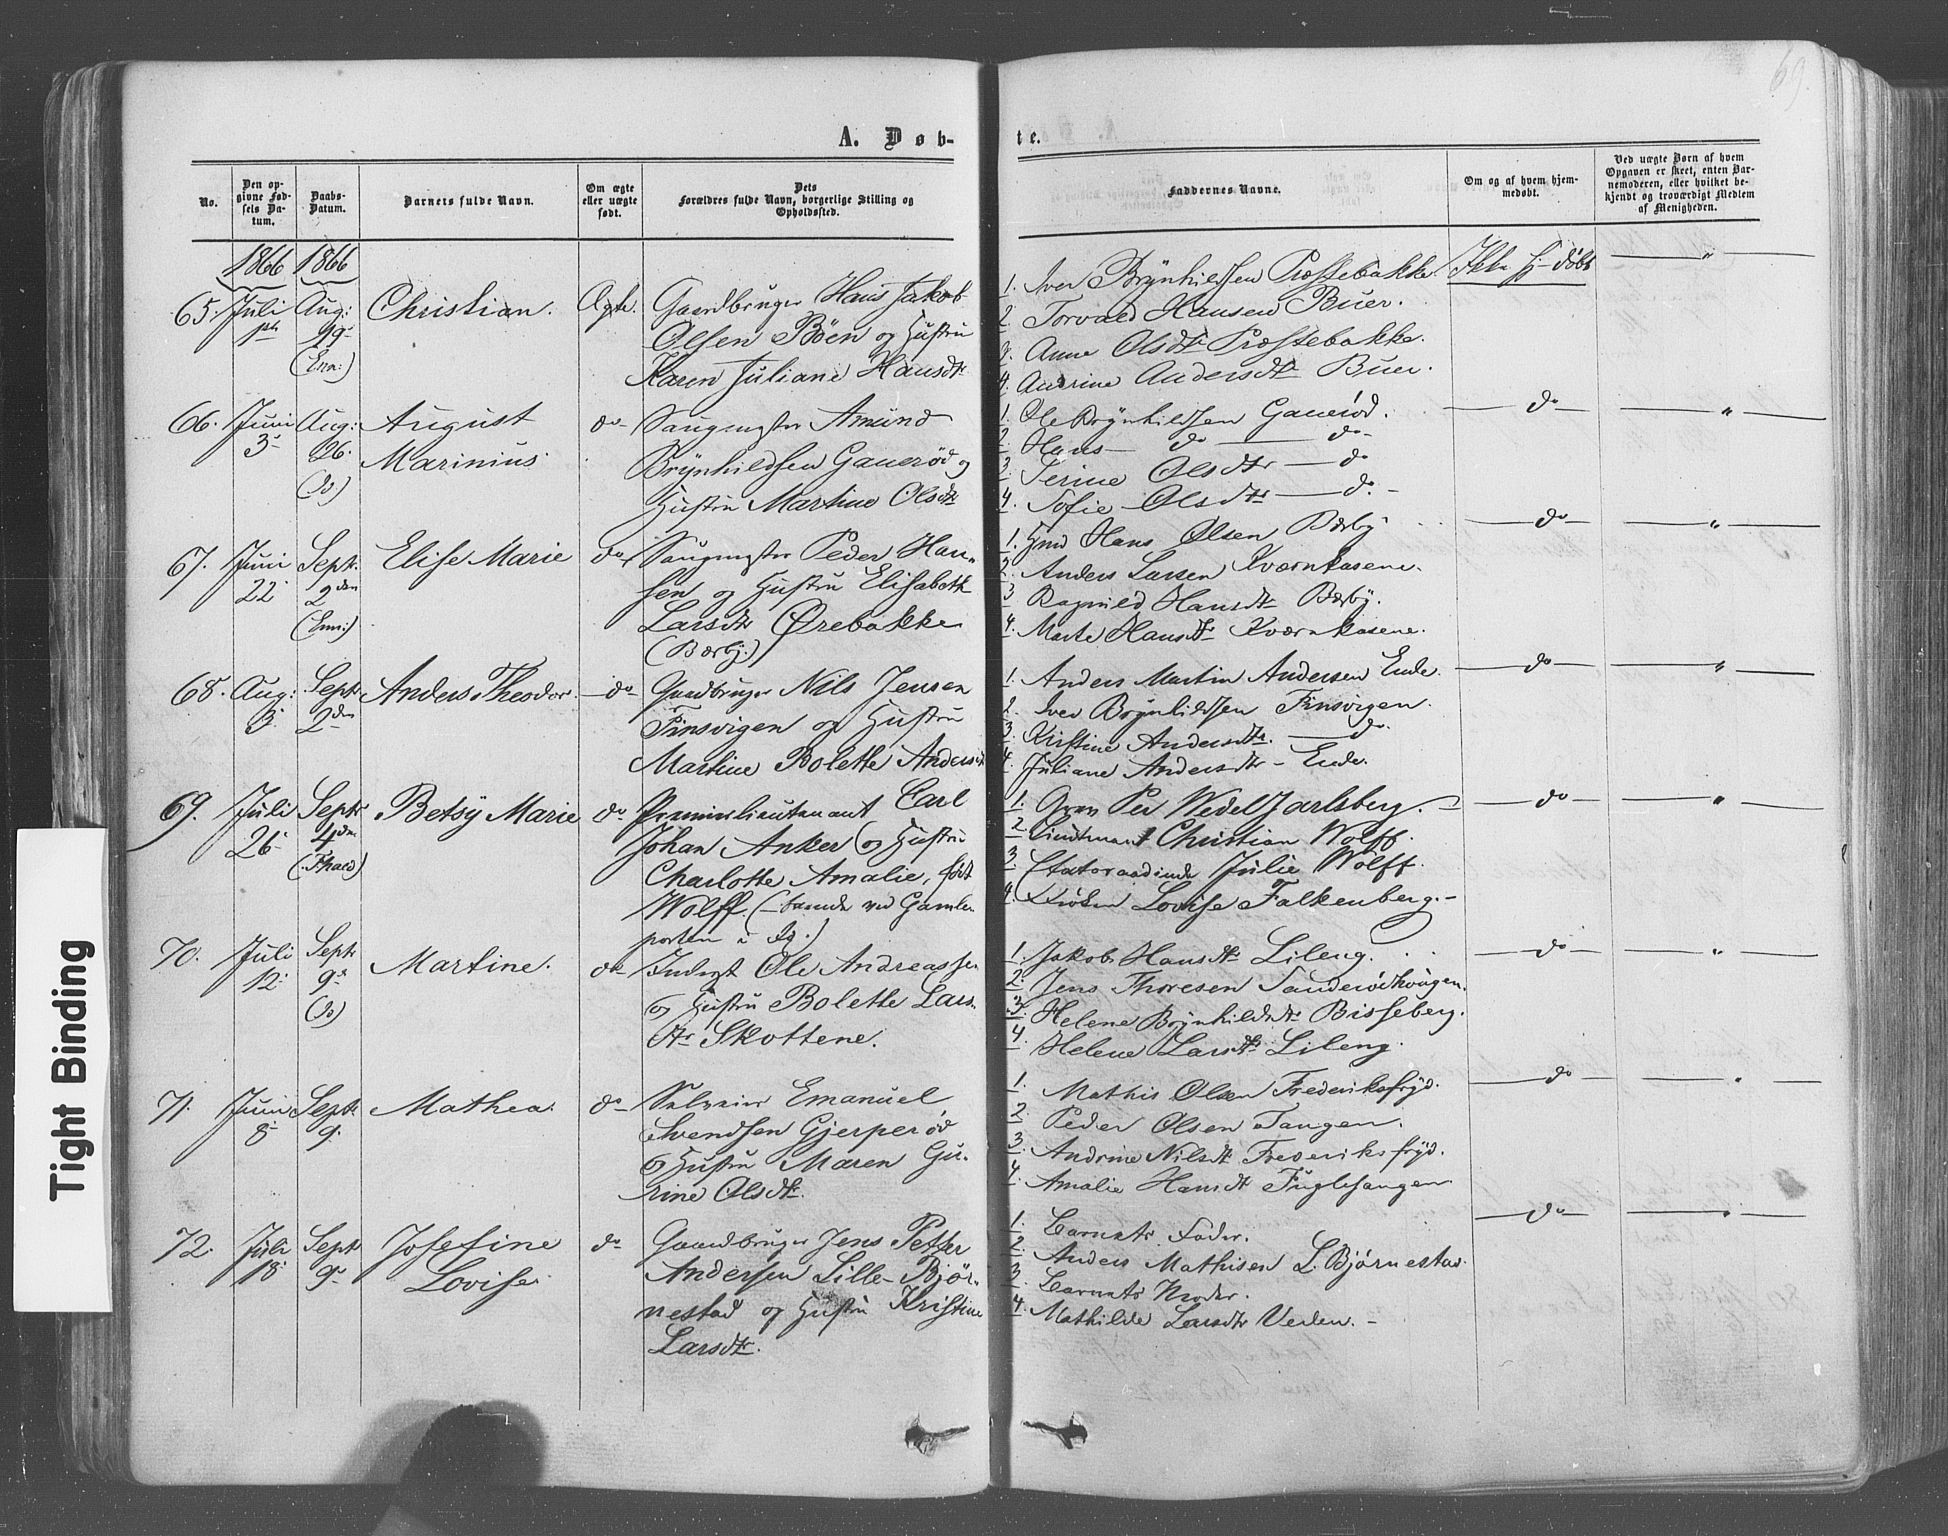 69.
A. Døb-
te.
No.
Den op-
givne Fød-
sels Da-
tum.
Daabs-
Datum.
Barnets fulde Navn.
Om ægte
eller uægte
født.
Dets
Forældres fulde Navn, borgerlige Stilling og
Opholdssted.
Faddernes Navne.
Om og af hvem hjem-
medøbt.
Ved uægte Børn af hvem
Opgaven er skeet, enten Bar-
nemoderen, eller hvilket be-
kjendt og troværdigt Medlem
af Menigheden.
1866 1866
65. Juli
Aug:
19
Christian.
Ægte.
Gaardbruger Hans Jakob
Olsen Böen og Hustru
Karen Juliane Hansdtr
1. Iver Brÿnhildsen Præstebakke
2. Torvald Hansen Buer.
3. Anne Olsdtr Præstebakke.
4. Andrine Andersdtr Buer.
Ikke hj-døbt
"
66. Juni
3
Aug:
26.
(do)
August
Marinius
do
Saugmster Amund
Brÿnhildsen Gauerød og
Hustru Martine Olsdtr
1. Ole Brÿnhildsen Gauerød.
2. Hans do do
3. Serine Olsdtr do
4. Sofie Olsdtr do.
do
"
67. Juni
22
Sept.
2den
Elise Marie
do
Saugmster Peder Han-
sen og Hustru Elisabeth
Larsdtr Ørebakke
(Bærbÿ.)
1. Hans Olsen Bærbÿ
2. Anders Larsen Kværnkasene.
3. Ragnild Hansdtr Bærbÿ.
4. Marte Hansdtr Kværnkasene.
do
"
68. Aug:
3
Sept
2den
Anders Theodor.
do
Gaardbruger Nils Jensen
Finsvigen og Hustru
Martine Bolette Andersdt
1. Anders Martin Andersen Ende.
2. Iver Brÿnhildsen Finsvigen.
3. Kristine Andersdtr. do.
4. Juliane Andersdtr Ende.
do
"
69. Juli
26
Sept
4den
Betsÿ Marie
do
Premierlieutenant Carl
Johan Anker og Hustru
Charlotte Amalie, født
Wolff. (boende ved Gamle-
porten i)
1. Grev Per Wedel Jarlsberg.
2. Lieutnant Christian Wolff.
3. Etatsraadinde Julie Wolff.
4. Frøken Lovise Falkenberg.
do
"
70. Juli
12
Sept
9
(do)
Martine.
do
Inderst Ole Andreassen
og Hustru Bolette Lars-
dtr Skottene.
1. Jakob Hansdtr Lileng.
2. Jens Thoresen
3. Helene Brÿnhildsdtr Bisseberg.
4. Helene Larsdtr Lileng.
do
"
71. Juni
8
Sept
9.
Mathea
do
Selveier Emanuel
Svendsen Gjerperød
og Hustru Maren Gu-
rine Olsdtr.
1. Mathis Olsen Frederiksfrÿd.
2. Peder Olsen Tangen.
3. Andrine Nilsdtr Frederiksfrÿd.
4. Amalie Hansdtr Fuglesangen
do
"
72. Juli
18
Sept
9
Josefine
Lovise
do
Gaardbruger Jens Petter
Andersen Lille-Bjør-
nestad og Hustru Kristine
Larsdtr.
1. Barnets Fader.
2. Anders Mathisen L. Bjørnestad
3. Barnets Moder.
4. Mathilde Larsdtr Veden.
do
"
Tight Binding